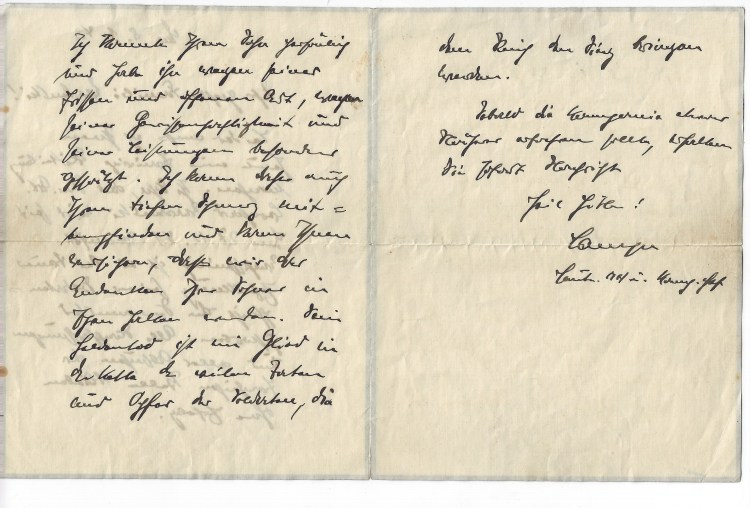 Ich kannte Ihren Sohn persönlich
und habe ihn wegen seiner
frischen und offenen Art, wegen
seiner Gewissenhaftigkeit und
seiner Leistungen besonders
geschätzt. Ich kann daher auch
Ihren tiefen Schmerz mit=
empfinden und kann Ihnen
versichern, dass wir das
Andenken Ihres Sohnes in
Ehren halten werden. Sein
Heldentod ist ein Glied in
der Kette der vielen Taten
und Opfer der Soldaten, die
dem Krieg den Sieg bringen
werden.
Sobald die Kompanie etwas
Näheres erfahren sollte, erhalten
Sie sofort Nachricht
Heil Hitler!
Leutn. u. Komp.